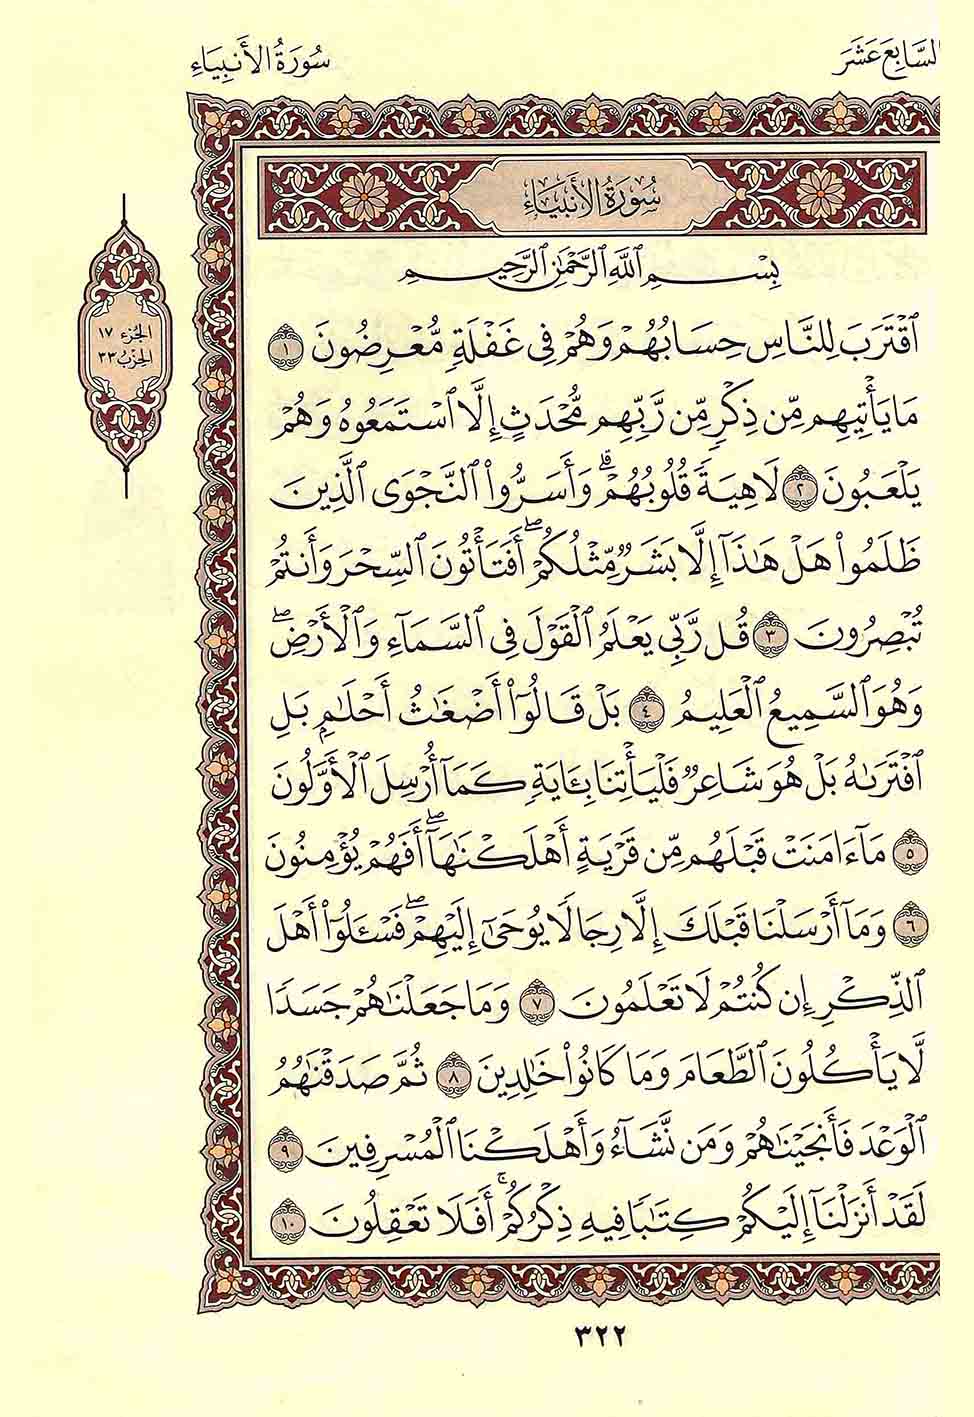 سُورَةُ الأَنبِيَاءِ
السَّابِعَ عَشَرَ
سُورَةُ الأَنبِيَاءِ
الجُزء ١٧
الحِزْبُ ٣٣
بِسْمِ ٱللَّهِ ٱلرَّحْمَٰنِ ٱلرَّحِيمِ
ٱقْتَرَبَ لِلنَّاسِ حِسَابُهُمْ وَهُمْ فِى غَفْلَةٍ مُّعْرِضُونَ ١
مَا يَأْتِيهِم مِّن ذِكْرٍ مِّن رَّبِّهِم مُّحْدَثٍ إِلَّا ٱسْتَمَعُوهُ وَهُمْ
يَلْعَبُونَ ٢ لَاهِيَةً قُلُوبُهُمْ ۗ وَأَسَرُّوا۟ ٱلنَّجْوَى ٱلَّذِينَ
ظَلَمُوا۟ هَلْ هَٰذَآ إِلَّا بَشَرٌ مِّثْلُكُمْ ۖ أَفَتَأْتُونَ ٱلسِّحْرَ وَأَنتُمْ
تُبْصِرُونَ ٣ قُل رَّبِّى يَعْلَمُ ٱلْقَوْلَ فِى ٱلسَّمَآءِ وَٱلْأَرْضِ ۖ
وَهُوَ ٱلسَّمِيعُ ٱلْعَلِيمُ ٤ بَلْ قَالُوٓا۟ أَضْغَٰثُ أَحْلَٰمٍۭ بَلِ
ٱفْتَرَىٰهُ بَلْ هُوَ شَاعِرٌ فَلْيَأْتِنَا بِـَٔايَةٍ كَمَآ أُرْسِلَ ٱلْأَوَّلُونَ
٥ مَآ ءَامَنَتْ قَبْلَهُم مِّن قَرْيَةٍ أَهْلَكْنَٰهَآ ۖ أَفَهُمْ يُؤْمِنُونَ
٦ وَمَآ أَرْسَلْنَا قَبْلَكَ إِلَّا رِجَالًا يُوحَىٰٓ إِلَيْهِمْ ۖ فَسْـَٔلُوٓا۟ أَهْلَ
ٱلذِّكْرِ إِن كُنتُمْ لَا تَعْلَمُونَ ٧ وَمَا جَعَلْنَٰهُمْ جَسَدًا
لَّا يَأْكُلُونَ ٱلطَّعَامَ وَمَا كَانُوا۟ خَٰلِدِينَ ٨ ثُمَّ صَدَقْنَٰهُمُ
ٱلْوَعْدَ فَأَنجَيْنَٰهُمْ وَمَن نَّشَآءُ وَأَهْلَكْنَا ٱلْمُسْرِفِينَ ٩
لَقَدْ أَنزَلْنَآ إِلَيْكُمْ كِتَٰبًا فِيهِ ذِكْرُكُمْ ۖ أَفَلَا تَعْقِلُونَ ١٠
٣٢٢